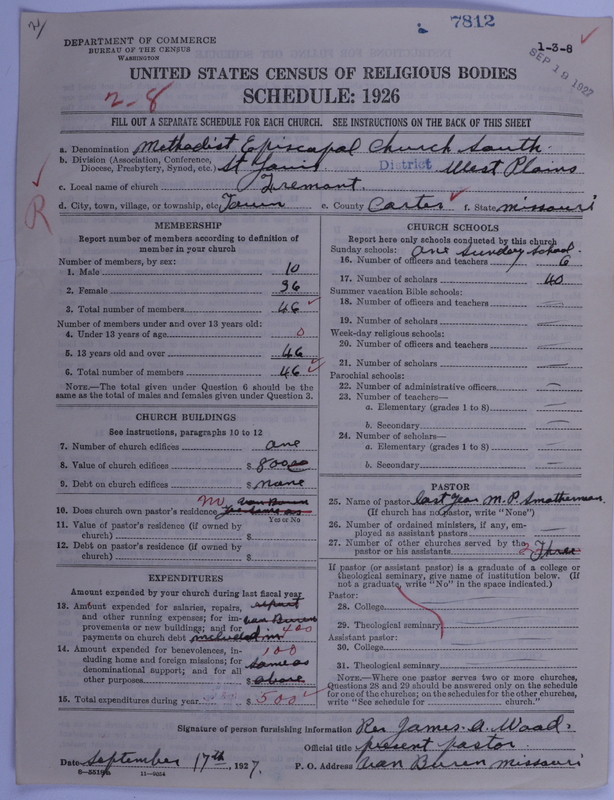 7812
DEPARTMENT OF COMMERCE
BUREAU OF THE CENSUS
WASHINGTON
1-3-8
SEP 19 1927
UNITED STATES CENSUS OF RELIGIOUS BODIES
2-8
SCHEDULE: 1926
FILL OUT A SEPARATE SCHEDULE FOR EACH CHURCH. SEE INSTRUCTIONS ON THE BACK OF THIS SHEET
a. Denomination Methodist Episcopal Church South.
b. Division (Association, Conference, Diocese, Presbytery, Synod, etc.) St Louis District West Plains
c. Local name of church Fremont.
R
d. City, town, village, or township, etc. Town e. County Carter f. State Missouri
MEMBERSHIP
Report number of members according to definition of member in your church
Number of members, by sex:
1. Male 10
2. Female 36
3. Total number of members 46
Number of members under and over 13 years old:
4. Under 13 years of age 0
5. 13 years old and over 46
6. Total number of members 46
NOTE.—The total given under Question 6 should be the same as the total of males and females given under Question 3.
CHURCH BUILDINGS
See instructions, paragraphs 10 to 12
7. Number of church edifices one
8. Value of church edifices $ 800
9. Debt on church edifices $ none
10. Does church own pastor's residence no van Buren same as
Yes or No
11. Value of pastor's residence (if owned by church) $
12. Debt on pastor's residence (if owned by church) $
EXPENDITURES
Amount expended by your church during last fiscal year
13. Amount expended for salaries, repairs, and other running expenses; for improvements or new buildings; and for payments on church debt report van Buren included in 400
14. Amount expended for benevolences, including home and foreign missions; for denominational support; and for all other purposes 100 same as $ above
15. Total expenditures during year $ 500
CHURCH SCHOOLS
Report here only schools conducted by this church
Sunday schools: One Sunday School.
16. Number of officers and teachers 6
17. Number of scholars 40
Summer vacation Bible schools:
18. Number of officers and teachers
19. Number of scholars
Week-day religious schools:
20. Number of officers and teachers
21. Number of scholars
Parochial schools:
22. Number of administrative officers
23. Number of teachers—
a. Elementary (grades 1 to 8)
b. Secondary
24. Number of scholars—
a. Elementary (grades 1 to 8)
b. Secondary
PASTOR
25. Name of pastor last year M. P. Smotherman
(If church has no pastor, write "None")
26. Number of ordained ministers, if any, employed as assistant pastors
27. Number of other churches served by the pastor or his assistants 2 Three
If pastor (or assistant pastor) is a graduate of a college or theological seminary, give name of institution below. (If not a graduate, write "No" in the space indicated.)
Pastor:
28. College
29. Theological seminary
Assistant pastor:
30. College
31. Theological seminary
NOTE.—Where one pastor serves two or more churches, Questions 28 and 29 should be answered only on the schedule for one of the churches; on the schedules for the other churches, write "See schedule for church."
Signature of person furnishing information Rev James. A. Wood.
Official title present pastor.
Date September 17th, 1927. P. O. Address Van Buren Missouri
11—9054